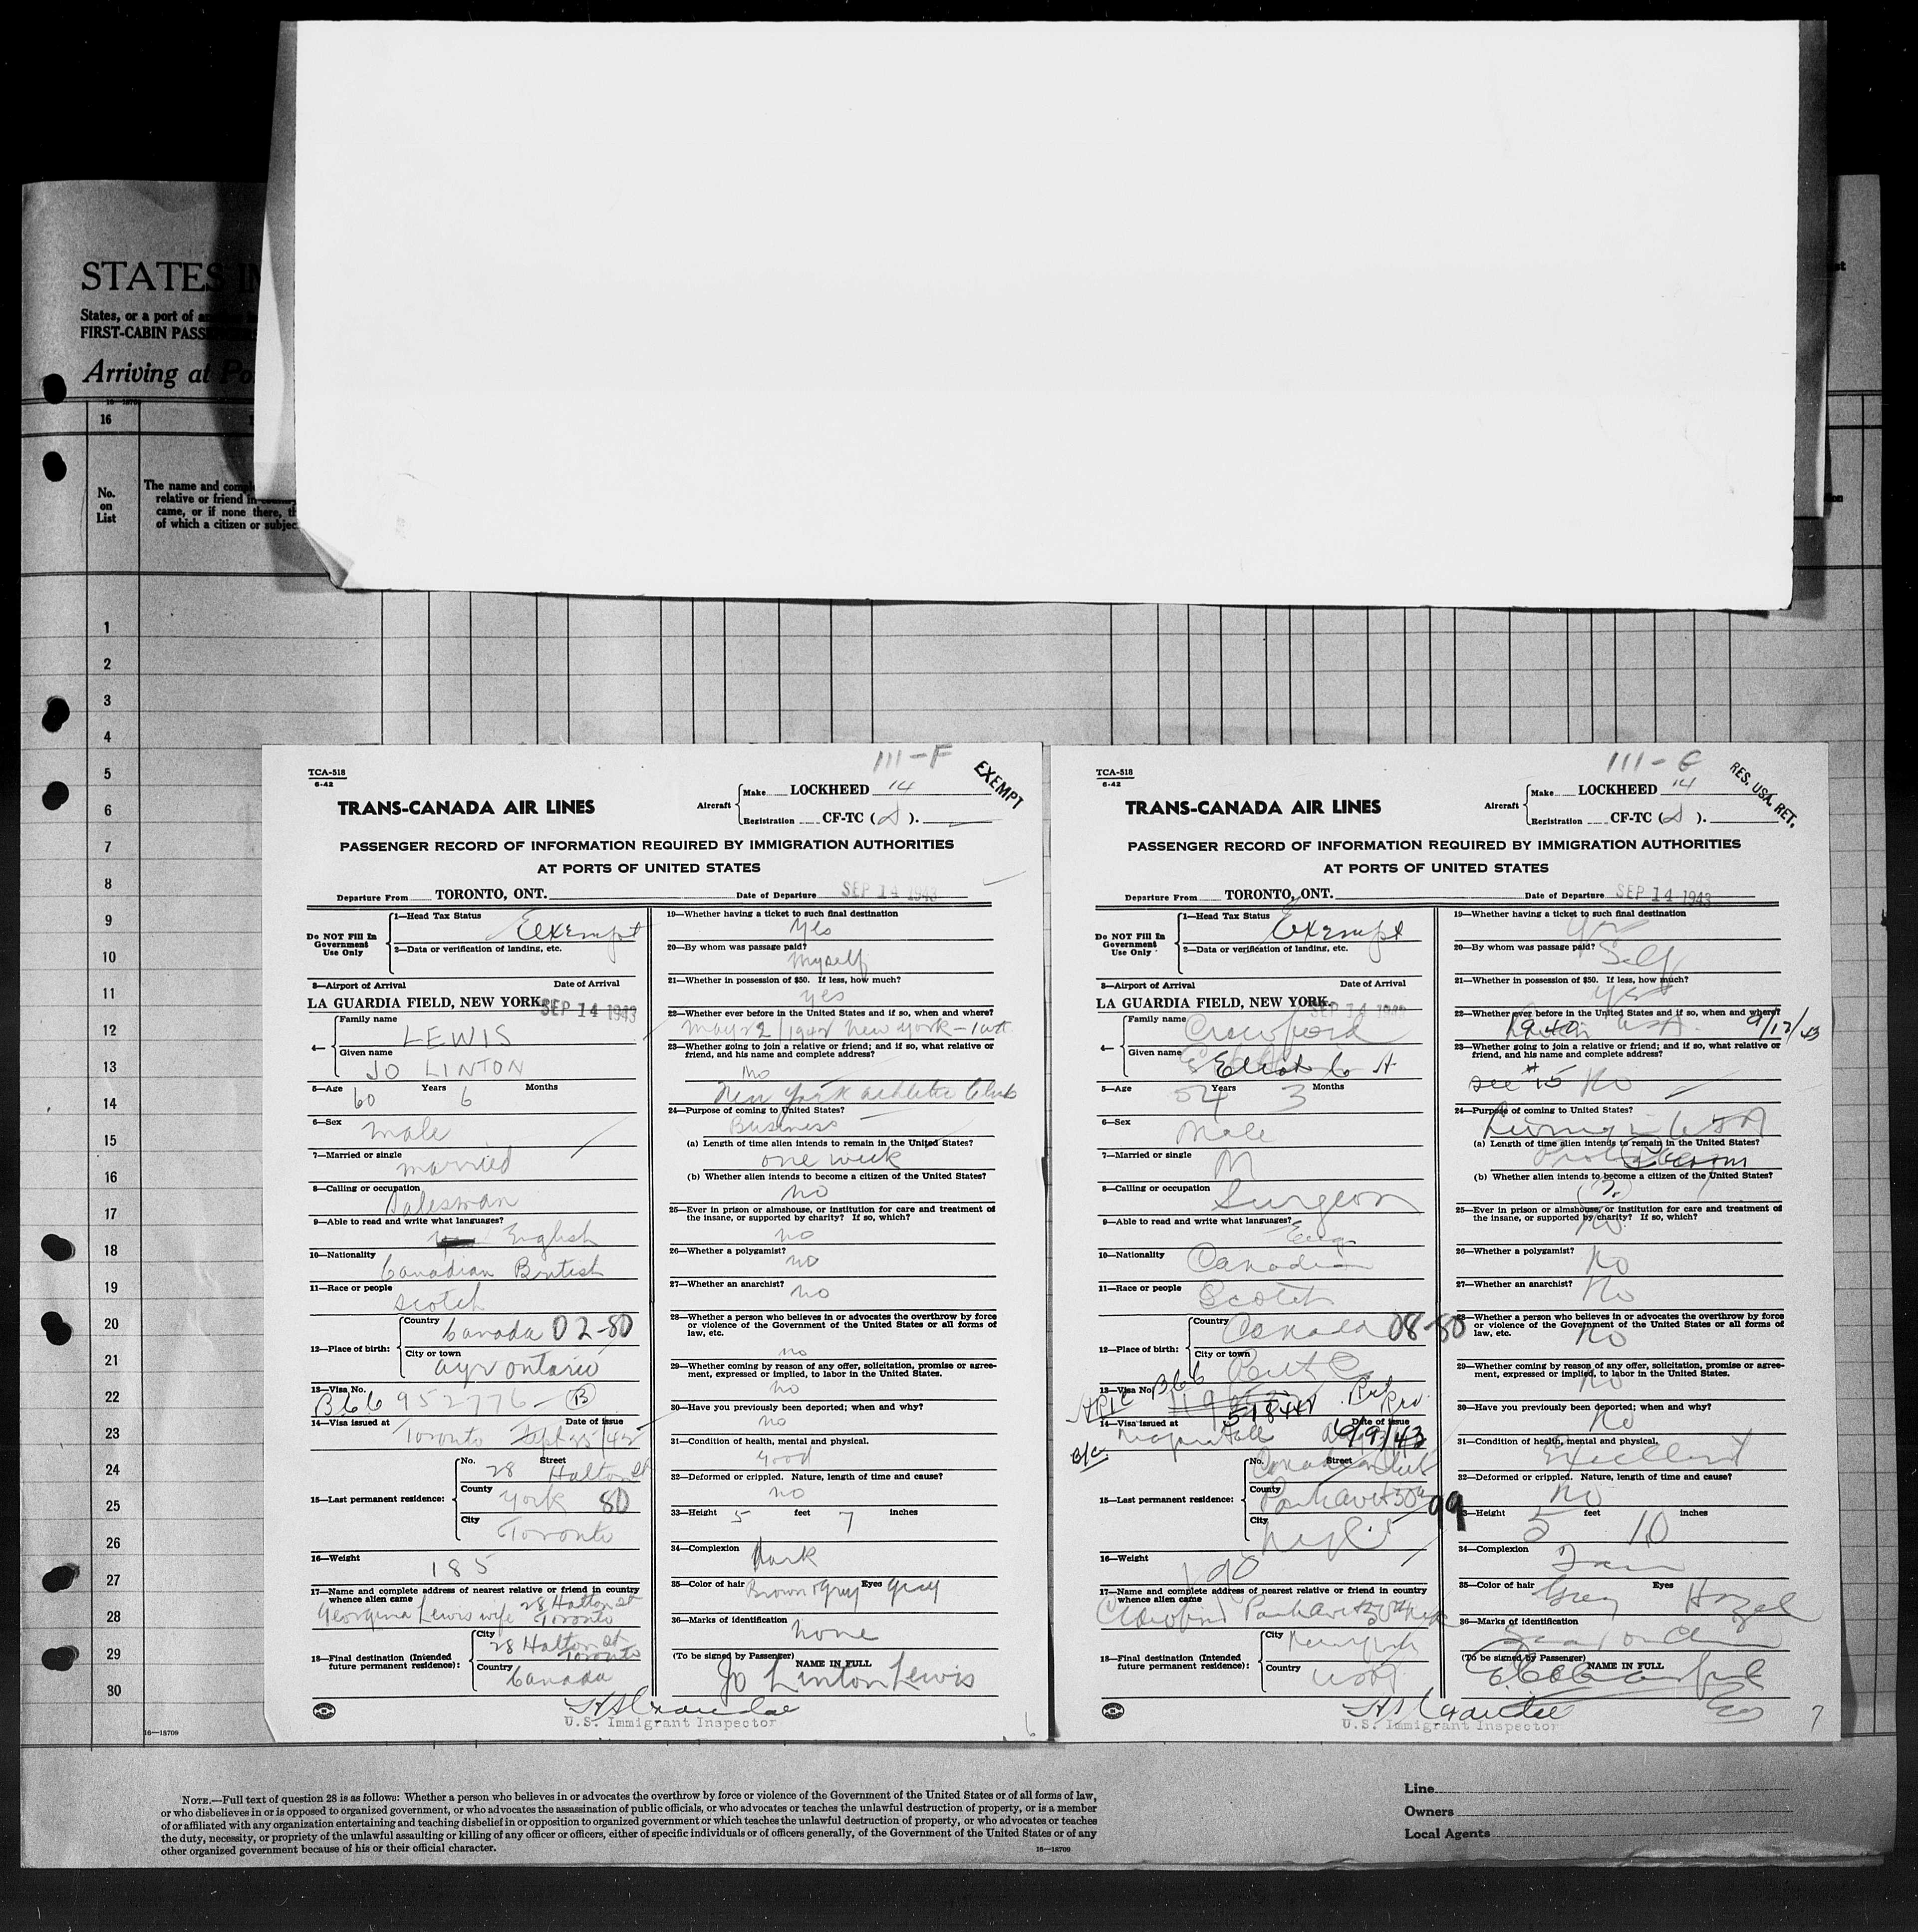 STATES
States, or a port of
FIRST-CABIN
Arriving at
16
No.
on
List
The name and
relative or friend in
came, or if none there,
of which a citizen or
1
2
3
4
5
6
7
8
9
10
11
12
13
14
15
16
17
18
19
20
21
22
23
24
25
26
27
28
29
30
16—18709
111-F
EXEMPT
TCA-518
6-42
TRANS-CANADA AIR LINES
Aircraft
Make LOCKHEED 14
Registration CF-TC ( ).
PASSENGER RECORD OF INFORMATION REQUIRED BY IMMIGRATION AUTHORITIES
AT PORTS OF UNITED STATES
Departure From TORONTO, ONT. Date of Departure SEP 14 1943
Do NOT Fill In
Government
Use Only
1—Head Tax Status Exempt
2—Data or verification of landing, etc.
3—Airport of Arrival Date of Arrival
LA GUARDIA FIELD, NEW YORK. SEP 14 1943
4—
Family name
LEWIS
Given name
JO LINTON
5—Age Years Months
60 6
6—Sex
male
7—Married or single
married
8—Calling or occupation
Salesman
9—Able to read and write what languages?
English
10—Nationality
Canadian British
11—Race or people
Scotch
12—Place of birth:
Country
Canada 02-80
City or town
Ayr Ontario
13—Visa No.
B66 952776 - B
14—Visa issued at Date of issue
Toronto Sept 25/42
15—Last permanent residence:
No. Street
28 Halton St
County
York 80
City
Toronto
16—Weight
185
17—Name and complete address of nearest relative or friend in country
whence alien came
Georgina Lewis wife 28 Halton St Toronto
18—Final destination (Intended
future permanent residence):
City
28 Halton St Toronto
Country
Canada
19—Whether having a ticket to such final destination
Yes
20—By whom was passage paid?
Myself
21—Whether in possession of $50. If less, how much?
yes
22—Whether ever before in the United States and if so, when and where?
May 22/1942 New York -
23—Whether going to join a relative or friend; and if so, what relative or
friend, and his name and complete address?
No
New York Athletic Club
24—Purpose of coming to United States?
Business
(a) Length of time alien intends to remain in the United States?
one week
(b) Whether alien intends to become a citizen of the United States?
no
25—Ever in prison or almshouse, or institution for care and treatment of
the insane, or supported by charity? If so, which?
no
26—Whether a polygamist?
no
27—Whether an anarchist?
no
28—Whether a person who believes in or advocates the overthrow by force
or violence of the Government of the United States or all forms of
law, etc.
no
29—Whether coming by reason of any offer, solicitation, promise or agree-
ment, expressed or implied, to labor in the United States.
no
30—Have you previously been deported; when and why?
no
31—Condition of health, mental and physical.
Good
32—Deformed or crippled. Nature, length of time and cause?
no
33—Height 5 feet 7 inches
34—Complexion Dark
35—Color of hair Brown & Grey Eyes gray
36—Marks of identification
none
(To be signed by Passenger) NAME IN FULL
Jo Linton Lewis
U.S. Immigrant Inspector
6
RES. USA. RET.
TCA-518
6-42
TRANS-CANADA AIR LINES
Aircraft
Make LOCKHEED 14
Registration CF-TC ( ).
PASSENGER RECORD OF INFORMATION REQUIRED BY IMMIGRATION AUTHORITIES
AT PORTS OF UNITED STATES
Departure From TORONTO, ONT. Date of Departure SEP 14 1943
Do NOT Fill In
Government
Use Only
1—Head Tax Status Exempt
2—Data or verification of landing, etc.
3—Airport of Arrival Date of Arrival
LA GUARDIA FIELD, NEW YORK. SEP 14
4—
Family name
Crawford
Given name
5—Age Years Months
54 3
6—Sex
Male
7—Married or single
M
8—Calling or occupation
Surgeon
9—Able to read and write what languages?
Eng
10—Nationality
Canadian
11—Race or people
Scotch
12—Place of birth:
Country
Canada 08-80
City or town
13—Visa No. B66
14—Visa issued at Date of issue
9/9/43
15—Last permanent residence:
No. Street
County
City
09
16—Weight
190
17—Name and complete address of nearest relative or friend in country
whence alien came
18—Final destination (Intended
future permanent residence):
City
New York
Country
19—Whether having a ticket to such final destination
Yes
20—By whom was passage paid?
Self
21—Whether in possession of $50. If less, how much?
Yes
22—Whether ever before in the United States and if so, when and where?
1940 USA
23—Whether going to join a relative or friend; and if so, what relative or
friend, and his name and complete address?
see #15 No
24—Purpose of coming to United States?
(a) Length of time alien intends to remain in the United States?
(b) Whether alien intends to become a citizen of the United States?
(?)
25—Ever in prison or almshouse, or institution for care and treatment of
the insane, or supported by charity? If so, which?
No
26—Whether a polygamist?
No
27—Whether an anarchist?
No
28—Whether a person who believes in or advocates the overthrow by force
or violence of the Government of the United States or all forms of
law, etc.
No
29—Whether coming by reason of any offer, solicitation, promise or agree-
ment, expressed or implied, to labor in the United States.
No
30—Have you previously been deported; when and why?
No
31—Condition of health, mental and physical.
Excellent
32—Deformed or crippled. Nature, length of time and cause?
No
33—Height 5 feet 10 inches
34—Complexion
35—Color of hair Grey Eyes Hazel
36—Marks of identification
(To be signed by Passenger) NAME IN FULL
U.S. Immigrant Inspector
7
NOTE.—Full text of question 28 is as follows: Whether a person who believes in or advocates the overthrow by force or violence of the Government of the United States or of all forms of law,
or who disbelieves in or is opposed to organized government, or who advocates the assassination of public officials, or who advocates or teaches the unlawful destruction of property, or is a member
of or affiliated with any organization entertaining and teaching disbelief in or opposition to organized government or which teaches the unlawful destruction of property, or who advocates or teaches
the duty, necessity, or propriety of the unlawful assaulting or killing of any officer or officers, either of specific individuals or of officers generally, of the Government of the United States or of any
other organized government because of his or their official character.
16—18709
Line
Owners
Local Agents